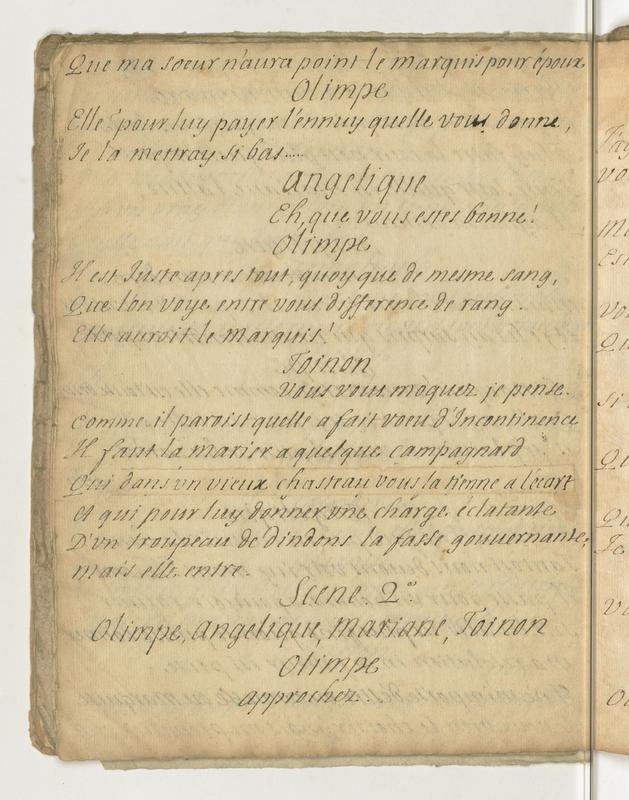 Que ma soeur n'aura point le marquis pour époux
Olimpe
Elle? pour luy payer l'ennuy quelle vous donne,
Je la mettray si bas.....
angelique
Eh, que vous estes bonne!
Olimpe
Il est Juste apres tout, quoy que de mesme sang,
Que l'on voye entre vous difference de rang.
Elle auroit le marquis!
Toinon
Vous vous moquez je pense.
comme il paroist quelle a fait voeu d'Incontinence
Il faut la marier a quelque campagnard
Qui dans vn vieux chasteau vous la tienne a l'ecart
et qui pour luy donner vne charge éclatante
D'vn troupeau de dindons la fasse gouvernante;
mais elle entre.
Scene 2e
Olimpe, angelique Mariane, Toinon
Olimpe
approchez